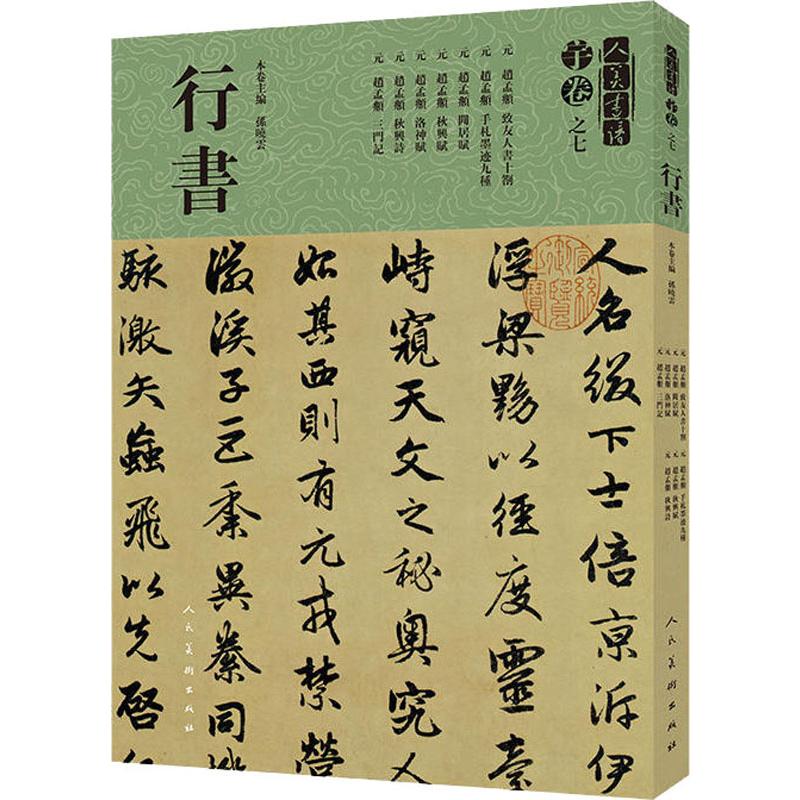 人美書谱
宇卷之七
元 趙孟頫 致友人書十劄
元 趙孟頫 手札墨迹九種
元 趙孟頫 閒居賦
元 趙孟頫 秋興賦
元 趙孟頫 洛神賦
元 趙孟頫 秋興詩
元 趙孟頫 三門記
本卷主編 孫曉雲
行書
人名綴下士倍京泝伊
浮梁黝以徑度靈臺
峙窺天文之秘奥究人
如其西則有元戎禁營
徽溪子巨黍異絭同機
駭激矢蝱飛以先啓行
人民美術出版社
人美書谱 宇卷之七
行書
本卷主編 孫曉雲
元 趙孟頫 致友人書十劄 元 趙孟頫 手札墨迹九種
元 趙孟頫 閒居賦 元 趙孟頫 秋興賦
元 趙孟頫 洛神賦 元 趙孟頫 秋興詩
元 趙孟頫 三門記
人民美術出版社